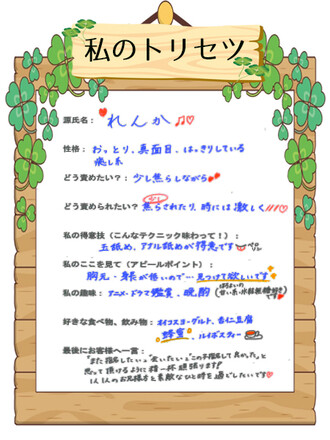 私のトリセツ
源氏名： れんか
性格： おっとり、真面目、はっきりしている
癒し系
どう責めたい？： 少し焦らしながら
少し
どう責められたい？： 焦らされたり、時には激しく!!
私の得意技（こんなテクニック味わって！）：
玉舐め、アナル舐めが得意です
私のここを見て（アピールポイント）：
胸元・身長が低いので…見つけて欲しいです
私の趣味： アニメ・ドラマ鑑賞、晩酌
です
好きな食べ物、飲み物： オイコスヨーグルト、杏仁豆腐
蜂蜜、ルイボスティー
最後にお客様へ一言：
"また指名したい" "会いたい" "この子指名して良かった"と
思って頂けるように精一杯頑張ります!
1人1人のお兄様方と素敵なひと時を過ごしたいです